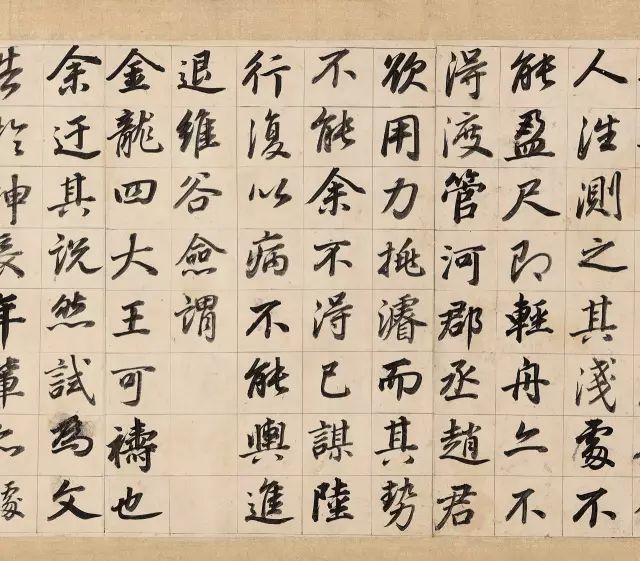 人往測之其淺處不
能盈尺即輕舟亦不
得渡管河郡丞趙君
欲用力挑濬而其勢
不能余不得已謀陸
行復以病不能輿進
退維谷僉謂
金龍四大王可禱也
余迂其說然試為文
告於神長年輩亦